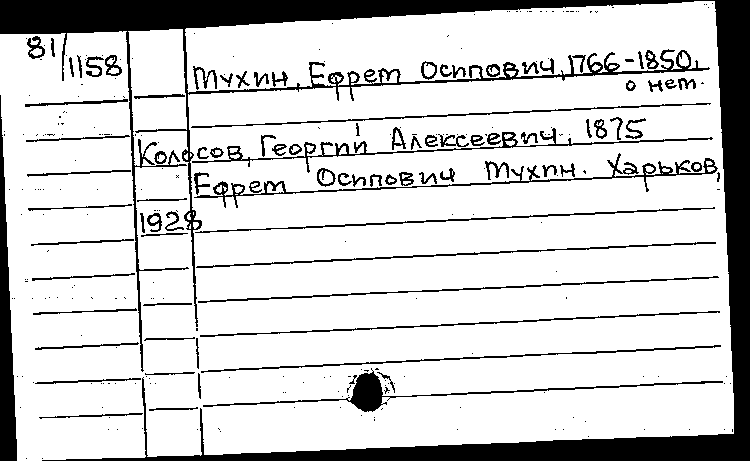 81/1158
Мухин, Ефрем Осипович, 1766-1850,
о нем.
Колосов, Георгий Алексеевич, 1875
Ефрем Осипович Мухин. Харьков,
1928